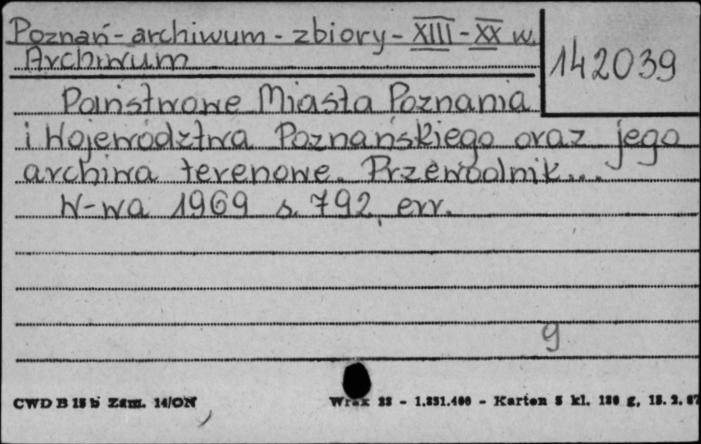 Poznań - archiwum - zbiory - XIII - XX w.
142039
Archiwum
Państwowe Miasta Poznania
i Województwa Poznańskiego oraz jego
archiwa terenowe. Przewodnik...
W-wa 1969 s. 792, err.
9
CWD B 15 b Zam. 14/ON
Wrax 23 - 1.831.400 - Karton 5 kl. 180 g, 15. 2. 67